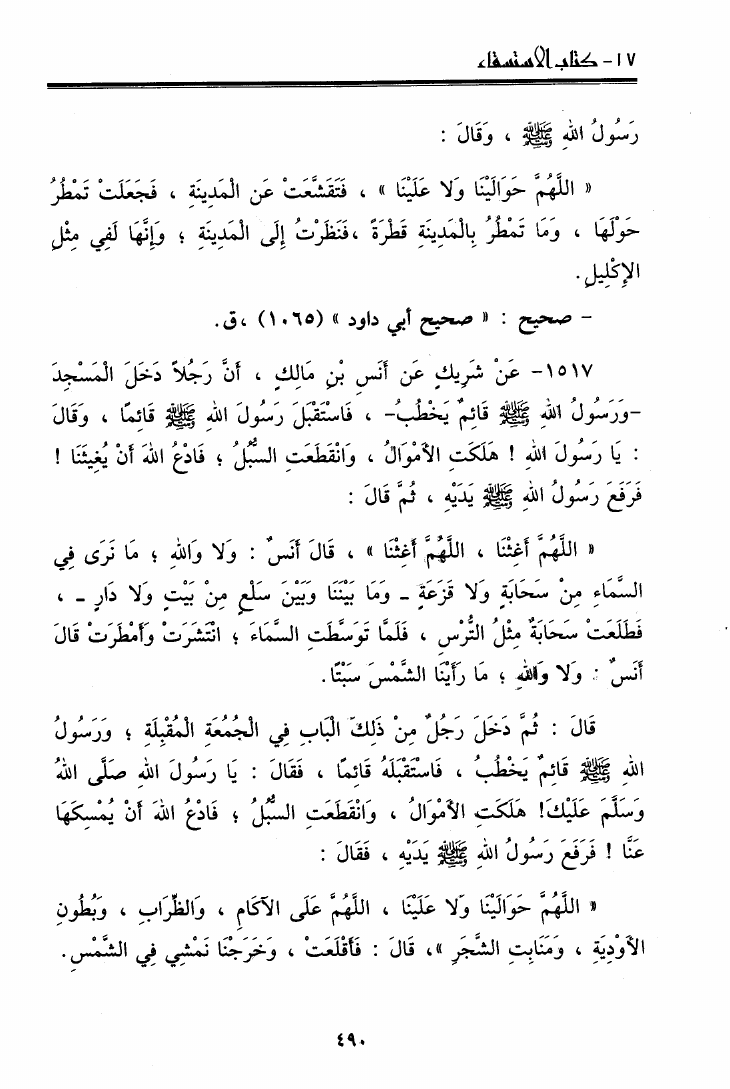 ١٧- كتاب الاستسقاء
رَسُولُ اللهِ ﷺ ، وَقَالَ :
« اللَّهُمَّ حَوَالَيْنَا وَلا عَلَيْنَا » ، فَتَقَشَّعَتْ عَنِ الْمَدِينَةِ ، فَجَعَلَتْ تَمْطُرُ
حَوْلَهَا ، وَمَا تَمْطُرُ بِالْمَدِينَةِ قَطْرَةً ،فَنَظَرْتُ إِلَى الْمَدِينَةِ ؛ وَإِنَّهَا لَفِي مِثْلِ
الإِكْلِيلِ.
- صحيح : « صحيح أبي داود » (١٠٦٥) ،ق.
١٥١٧- عَنْ شَرِيكٍ عَن أَنَسِ بْنِ مَالِكٍ ، أَنَّ رَجُلاً دَخَلَ الْمَسْجِدَ
-وَرَسُولُ اللهِ ﷺ قَائِمٌ يَخْطُبُ- ، فَاسْتَقْبَلَ رَسُولَ اللهِ ﷺ قَائِمًا ، وَقَالَ
: يَا رَسُولَ اللهِ ! هَلَكَتِ الأَمْوَالُ ، وَانْقَطَعَتِ السُّبُلُ ؛ فَادْعُ اللهَ أَنْ يُغِيثَنَا !
فَرَفَعَ رَسُولُ اللهِ ﷺ يَدَيْهِ ، ثُمَّ قَالَ :
« اللَّهُمَّ أَغِثْنَا ، اللَّهُمَّ أَغِثْنَا » ، قَالَ أَنَسٌ : وَلا وَاللهِ ؛ مَا نَرَى فِي
السَّمَاءِ مِنْ سَحَابَةٍ وَلا قَزَعَةٍ - وَمَا بَيْنَنَا وَبَيْنَ سَلْعٍ مِنْ بَيْتٍ وَلا دَارٍ - ،
فَطَلَعَتْ سَحَابَةٌ مِثْلُ التُّرْسِ ، فَلَمَّا تَوَسَّطَتِ السَّمَاءَ ؛ انْتَشَرَتْ وَأَمْطَرَتْ قَالَ
أَنَسٌ : وَلا وَاللهِ ؛ مَا رَأَيْنَا الشَّمْسَ سَبْتًا.
قَالَ : ثُمَّ دَخَلَ رَجُلٌ مِنْ ذَلِكَ الْبَابِ فِي الْجُمُعَةِ الْمُقْبِلَةِ ؛ وَرَسُولُ
اللهِ ﷺ قَائِمٌ يَخْطُبُ ، فَاسْتَقْبَلَهُ قَائِمًا ، فَقَالَ : يَا رَسُولَ اللهِ صَلَّى اللهُ
وَسَلَّمَ عَلَيْكَ! هَلَكَتِ الأَمْوَالُ ، وَانْقَطَعَتِ السُّبُلُ ؛ فَادْعُ اللهَ أَنْ يُمْسِكَهَا
عَنَّا ! فَرَفَعَ رَسُولُ اللهِ ﷺ يَدَيْهِ ، فَقَالَ :
« اللَّهُمَّ حَوَالَيْنَا وَلا عَلَيْنَا ، اللَّهُمَّ عَلَى الآكَامِ ، وَالظِّرَابِ ، وَبُطُونِ
الأَوْدِيَةِ ، وَمَنَابِتِ الشَّجَرِ »، قَالَ : فَأَقْلَعَتْ ، وَخَرَجْنَا نَمْشِي فِي الشَّمْسِ.
٤٩٠